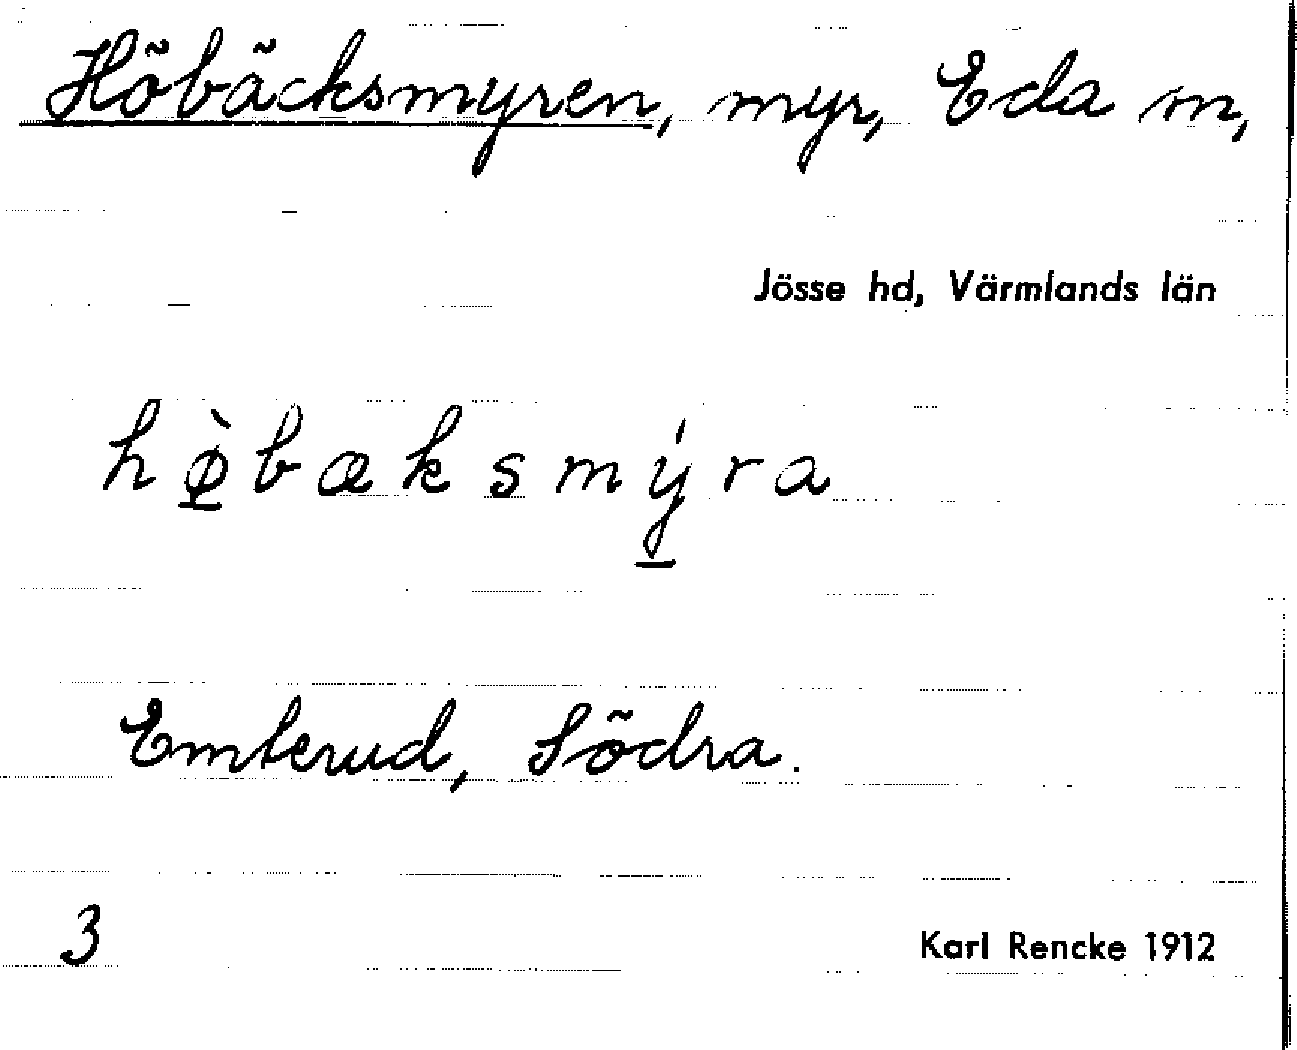 Höbäcksmyren, myr, Eda m,
Jösse hd, Värmlands län
hø̱̀bæksmý̱ra
Emterud, Södra.
3
Karl Rencke 1912